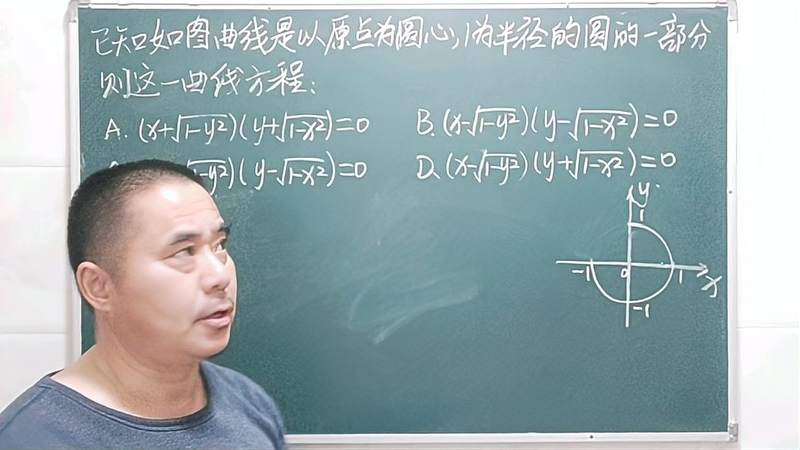 已知如图曲线是以原点为圆心,1为半径的圆的一部分
则这一曲线方程:
A. (x+√1-y²)(y+√1-x²)=0 B. (x-√1-y²)(y-√1-x²)=0
√1-y²)(y-√1-x²)=0 D. (x-√1-y²)(y+√1-x²)=0
y
1
-1 0 1 x
-1